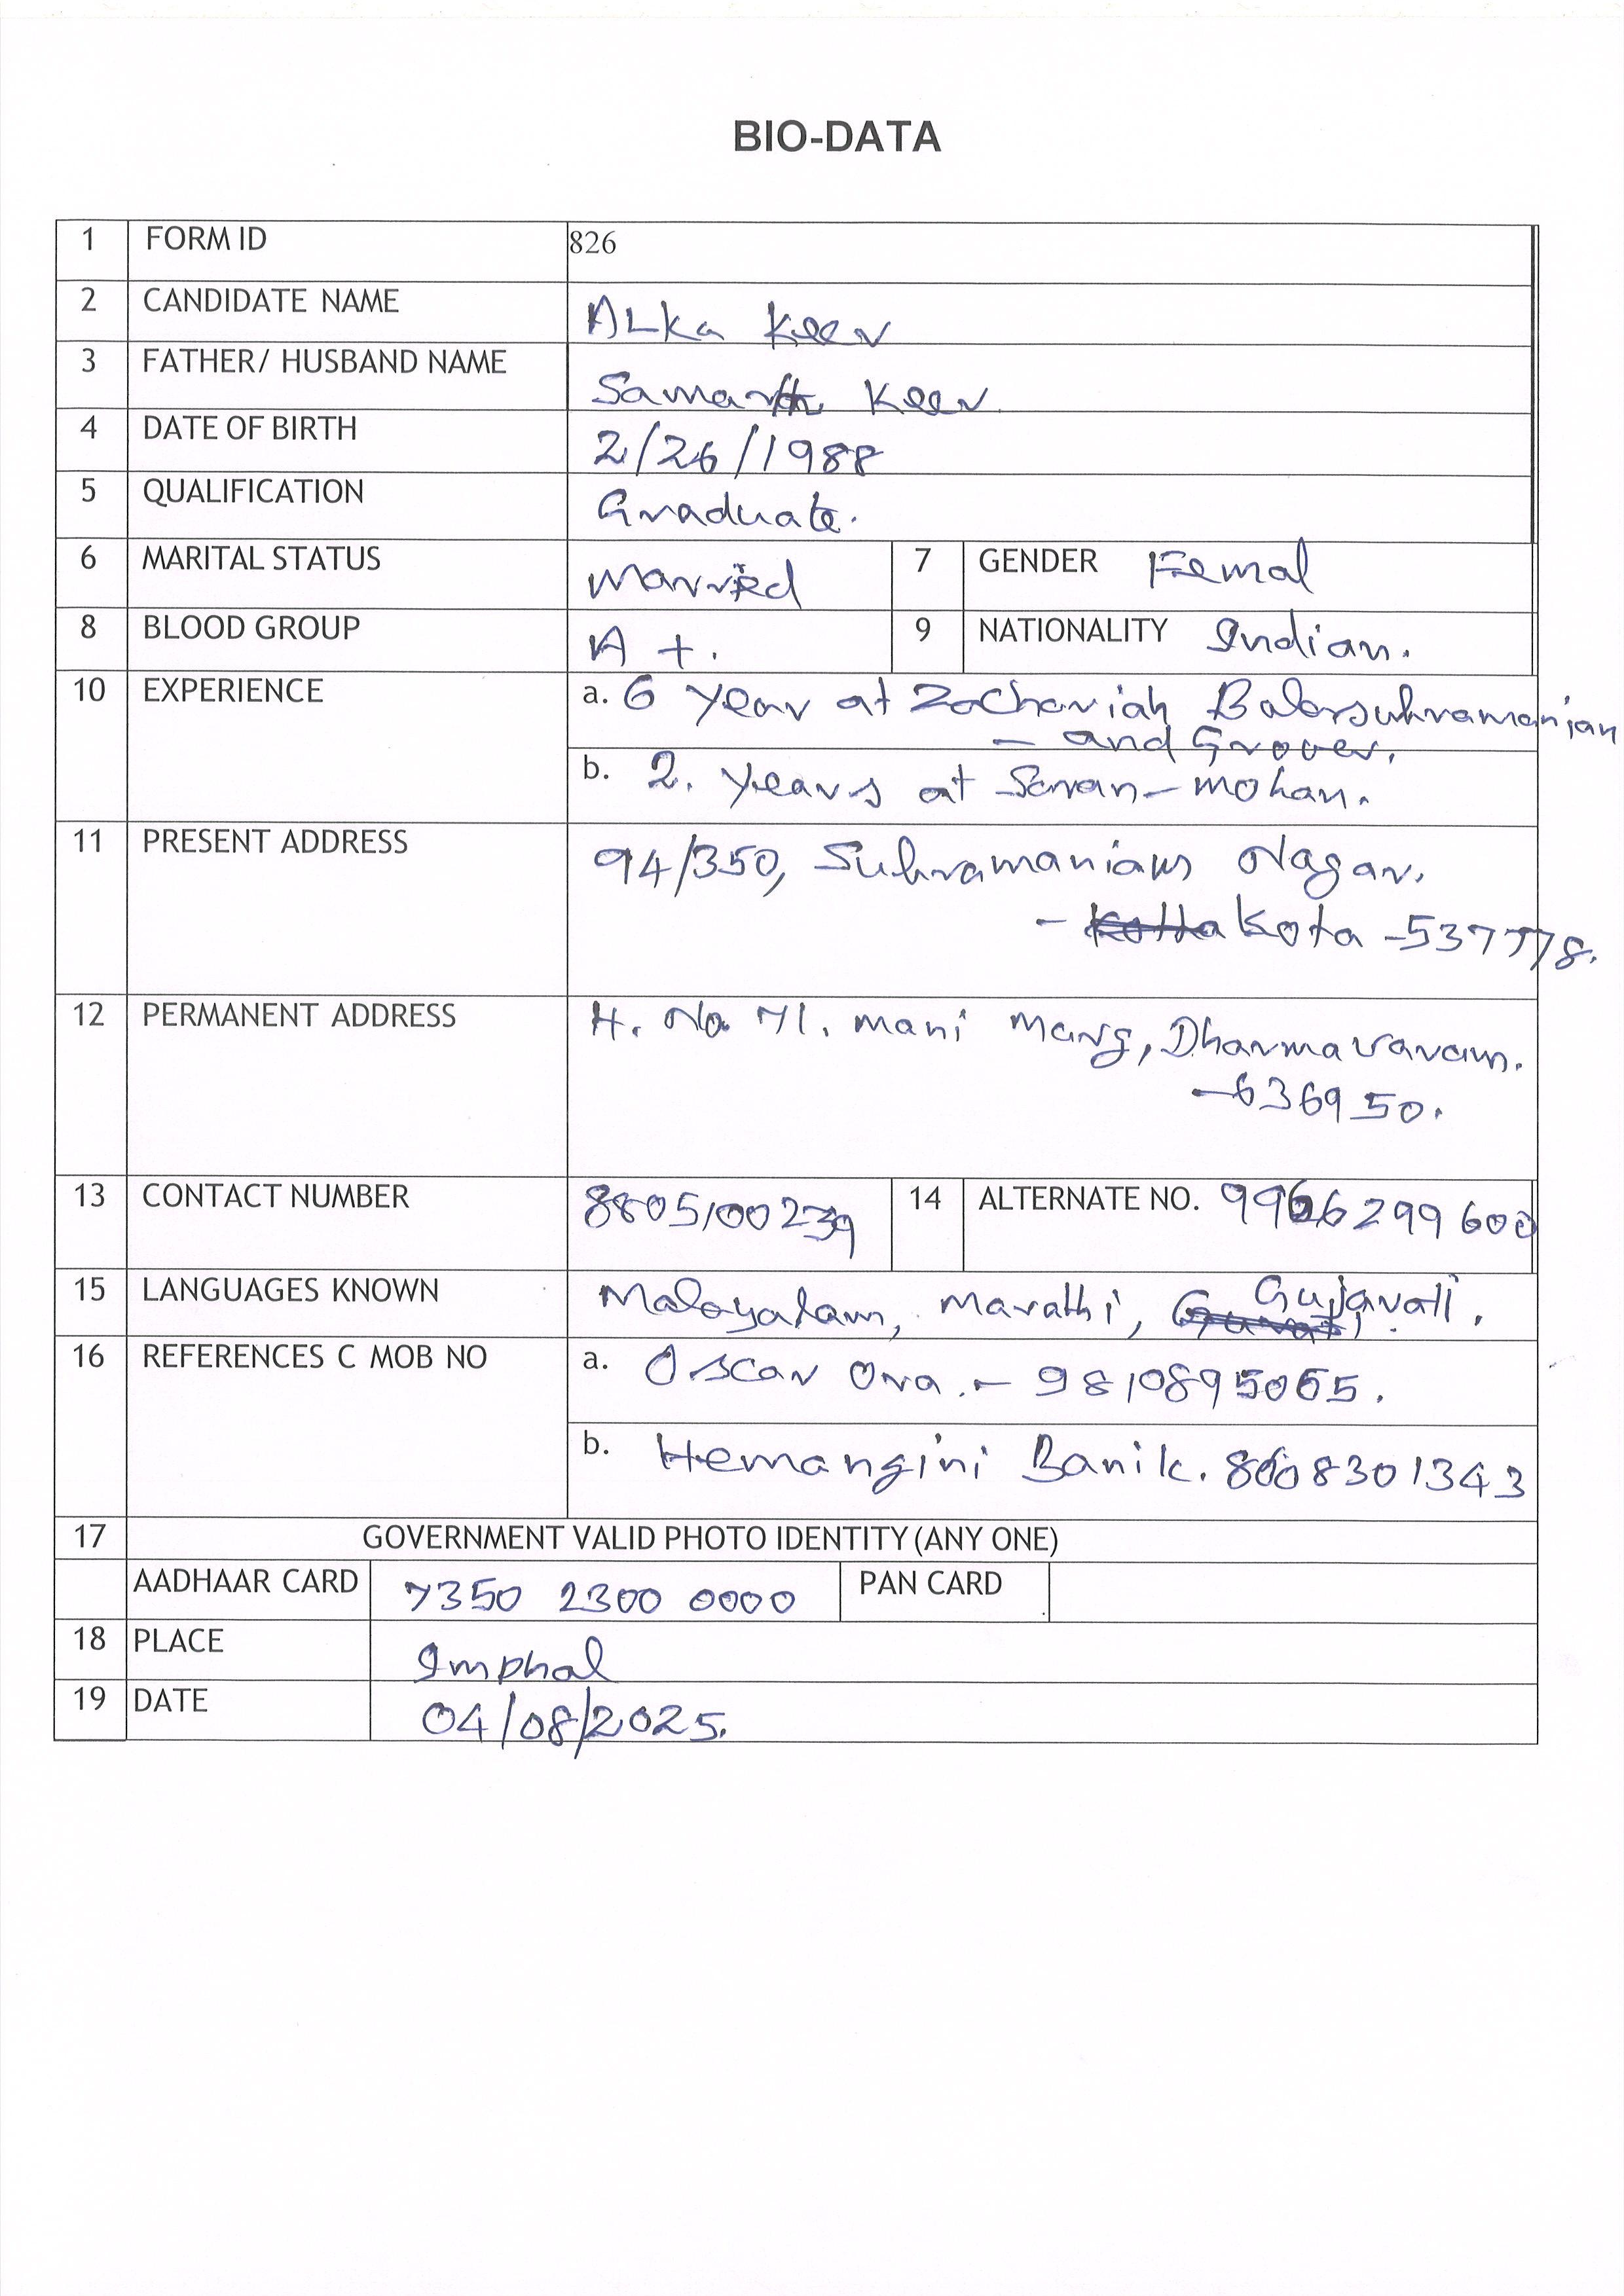 BIO-DATA
1 FORM ID 826
2 CANDIDATE NAME Alka Keer
3 FATHER/ HUSBAND NAME Samarth Keer
4 DATE OF BIRTH 2/26/1988
5 QUALIFICATION Graduate.
6 MARITAL STATUS Married 7 GENDER Femal
8 BLOOD GROUP A +. 9 NATIONALITY Indian.
10 EXPERIENCE a. 6 year at Zachariah Balasubramanian
- and Grover.
b. 2. years at Saran-Mohan.
11 PRESENT ADDRESS 94/350, Subramaniam Nagar.
- Kota -537778.
12 PERMANENT ADDRESS H. No 71. Mani Marg, Dharmavaram.
-636950.
13 CONTACT NUMBER 8805100239 14 ALTERNATE NO. 9966299600
15 LANGUAGES KNOWN Malayalam, Marathi, Gujarati.
16 REFERENCES C MOB NO a. Oscar Ora. - 9810895065.
b. Hemangini Banik. 8608301343
17 GOVERNMENT VALID PHOTO IDENTITY (ANY ONE)
AADHAAR CARD 7350 2300 0000 PAN CARD
18 PLACE Imphal
19 DATE 04/08/2025.